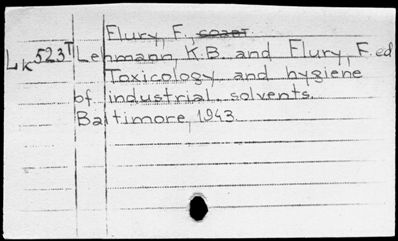 Flury, F.,
Lk523T Lehmann, K.B. and Flury, F. ed
Toxicology and hygiene
of industrial solvents.
Baltimore, 1943